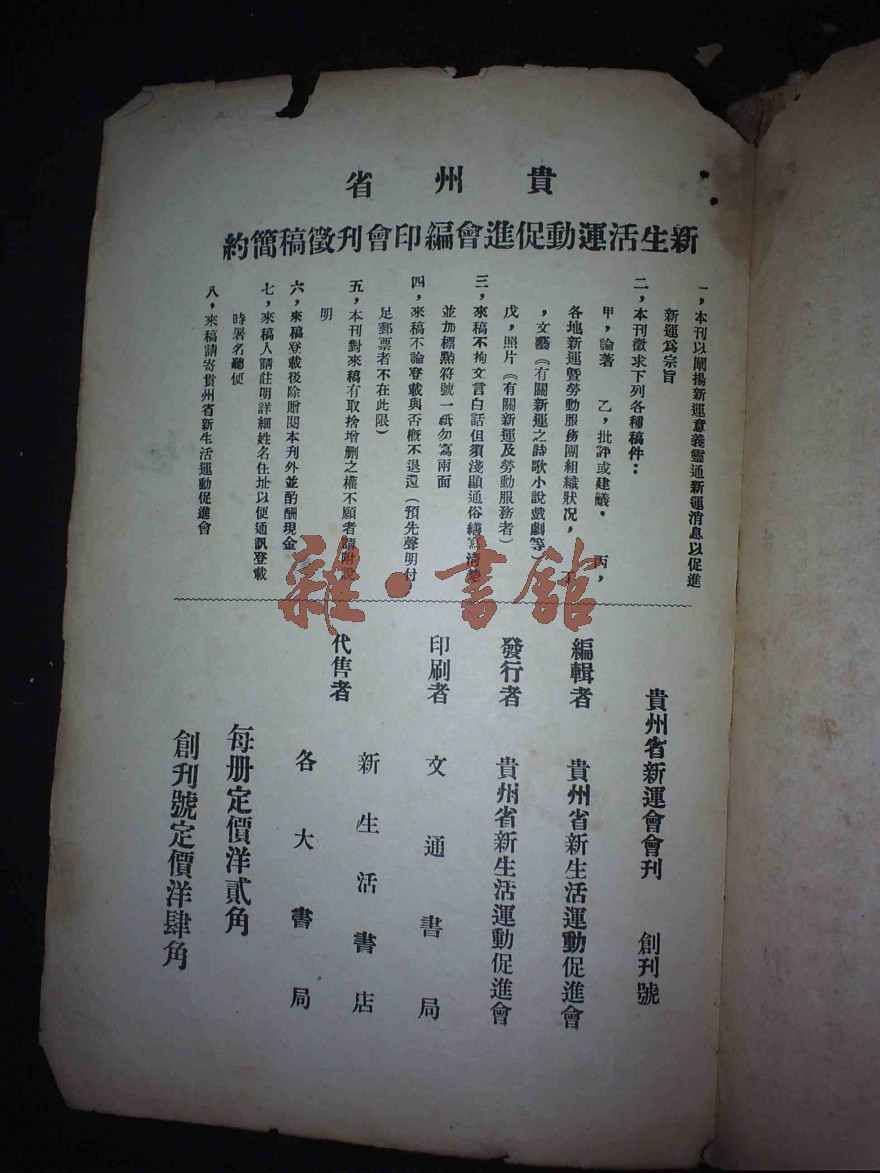 貴州省
新生活運動促進會編印會刊徵稿簡約
一，本刊以闡揚新運意義靈通新運消息以促進
新運爲宗旨
二，本刊徵求下列各種稿件：
甲，論著　乙，批評或建議，　丙，
各地新運暨勞動服務團組織狀况，　丁
，文藝（有關新運之詩歌小說戲劇等）
戊，照片（有關新運及勞動服務者）
三，來稿不拘文言白話但須淺顯通俗繕寫清楚
並加標點符號一紙勿寫兩面
四，來稿不論登載與否概不退還（預先聲明付
足郵票者不在此限）
五，本刊對來稿有取捨增删之權不願者請附說
明
六，來稿登載後除贈閱本刊外並酌酬現金
七，來稿人請註明詳細姓名住址以便通訊登載
時署名聽便
八，來稿請寄貴州省新生活運動促進會
雜·書館
貴州省新運會會刊　創刊號
編輯者　貴州省新生活運動促進會
發行者　貴州省新生活運動促進會
印刷者　文通書局
代售者　新生活書店
各大書局
每册定價洋貳角
創刊號定價洋肆角